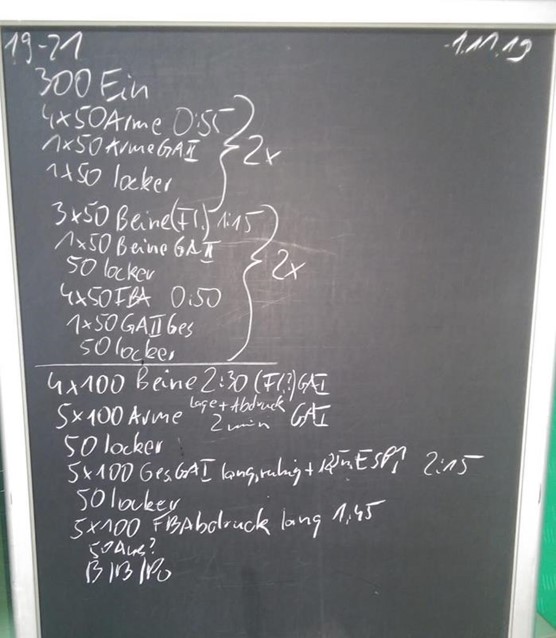 19-21 1.11.19
300 Ein
4x50 Arme 0:55
1x50 Arme GAII
1x50 locker
2x
3x50 Beine (Fl.) 1:15
1x50 Beine GAII
50 locker
4x50 FBA 0:50
1x50 GAII Ges
50 locker
2x
4x100 Beine 2:30 (Fl?) GAI
5x100 Arme Lage + Abdruck 2min GAI
50 locker
5x100 Ges. GAI lang, ruhig + ESP1 2:15
50 locker
5x100 FBAbdruck lang 1:45
50 Aus?
B/B/Po